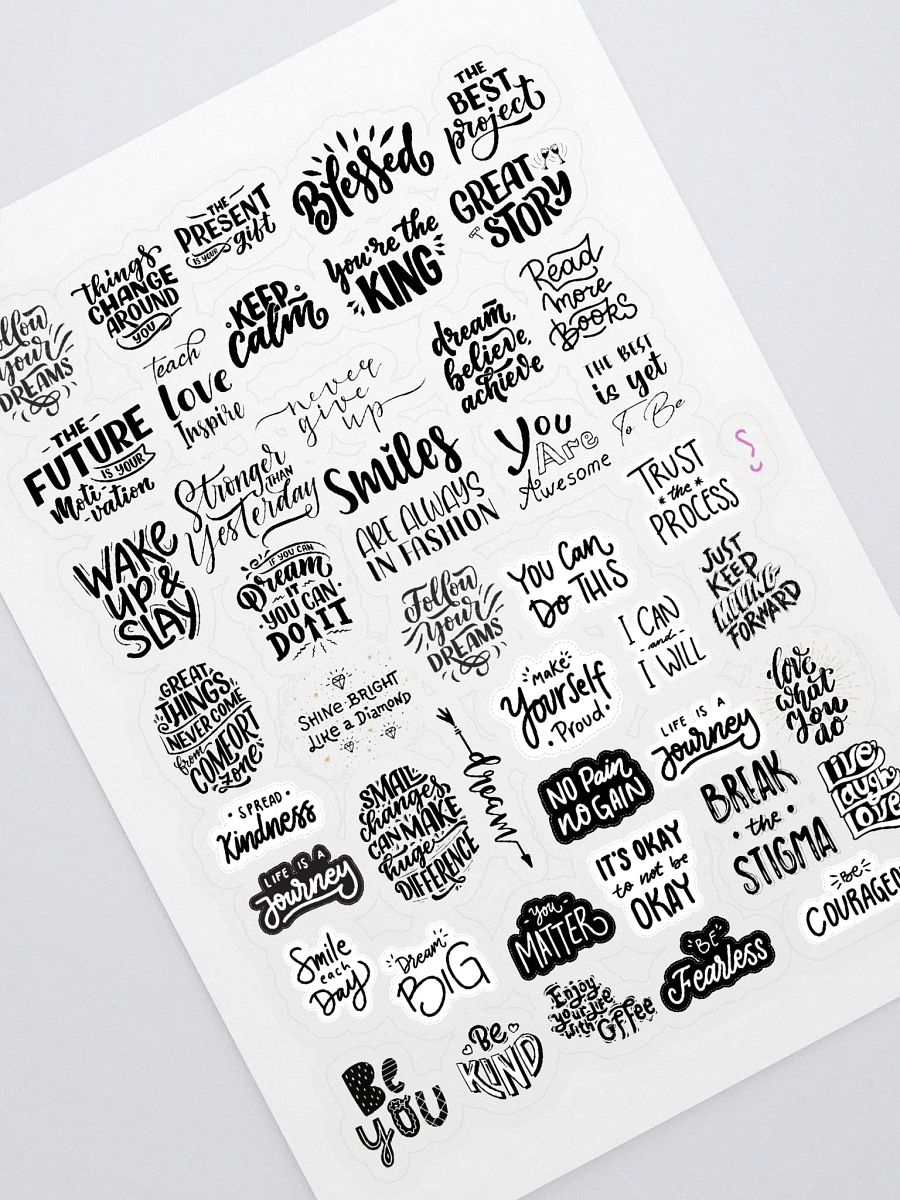 THE
BEST
project
Blessed
GREAT
STORY
THE
PRESENT
IS YOUR
gift
you're the
KING
things
CHANGE
AROUND
YOU
KEEP
calm
Read
more
Books
ollow
your
DREAMS
teach
love
Inspire
never
give
up
dream,
believe,
achieve
THE BEST
is yet
To Be
THE
FUTURE
IS YOUR
Moti-
-vation
Stronger
THAN
Yesterday
Smiles
ARE ALWAYS
IN FASHION
You
Are
Awesome
TRUST
the
PROCESS
WAKE
UP &
SLAY
IF YOU CAN
Dream
IT
YOU CAN
DO IT
Follow
Your
DREAMS
YOU CAN
Do THIS
I CAN
and
I WILL
JUST
KEEP
FORWARD
GREAT
THINGS
NEVER COME
from
COMFORT
zone
SHINE BRIGHT
LIKE a DIAMOND
Make
Yourself
Proud
LIFE IS A
Journey
love
what
you
do
SPREAD
Kindness
SMALL
changes
CAN MAKE
huge
DIFFERENCE
dream
NO Pain
NO GAIN
BREAK
the
STIGMA
Live
Laugh
Love
LIFE IS A
Journey
IT'S OKAY
to not be
OKAY
Be
COURAGEO
Smile
each
Day
Dream
BIG
You
MATTER
BE
Fearless
Enjoy
your life
with
Coffee
Be
KIND
Be
yOU